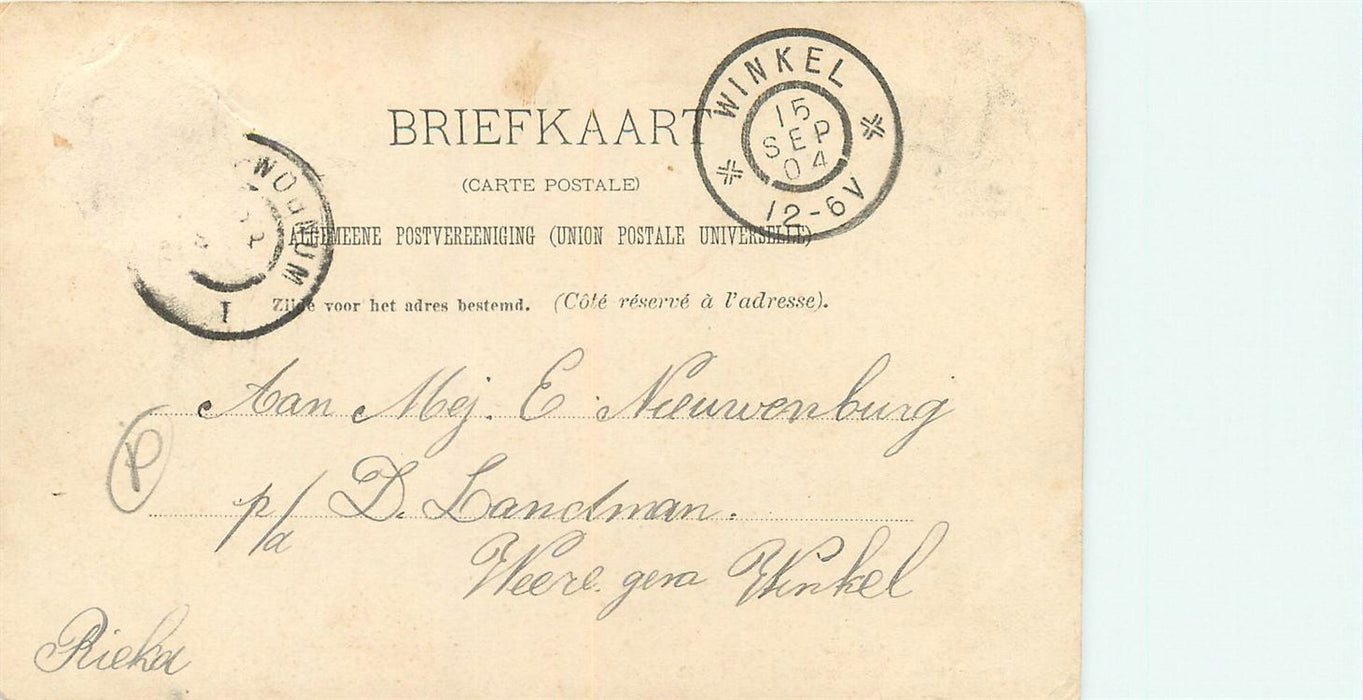 WINKEL
15
SEP
04
12-6V
BRIEFKAART
(CARTE POSTALE)
WOGNUM
1
ALGEMEENE POSTVEREENIGING (UNION POSTALE UNIVERSELLE)
Zijde voor het adres bestemd. (Côté réservé à l'adresse).
Aan Mej. E. Nieuwenburg
p/a D. Landman.
Weere. gem Winkel
Rieka